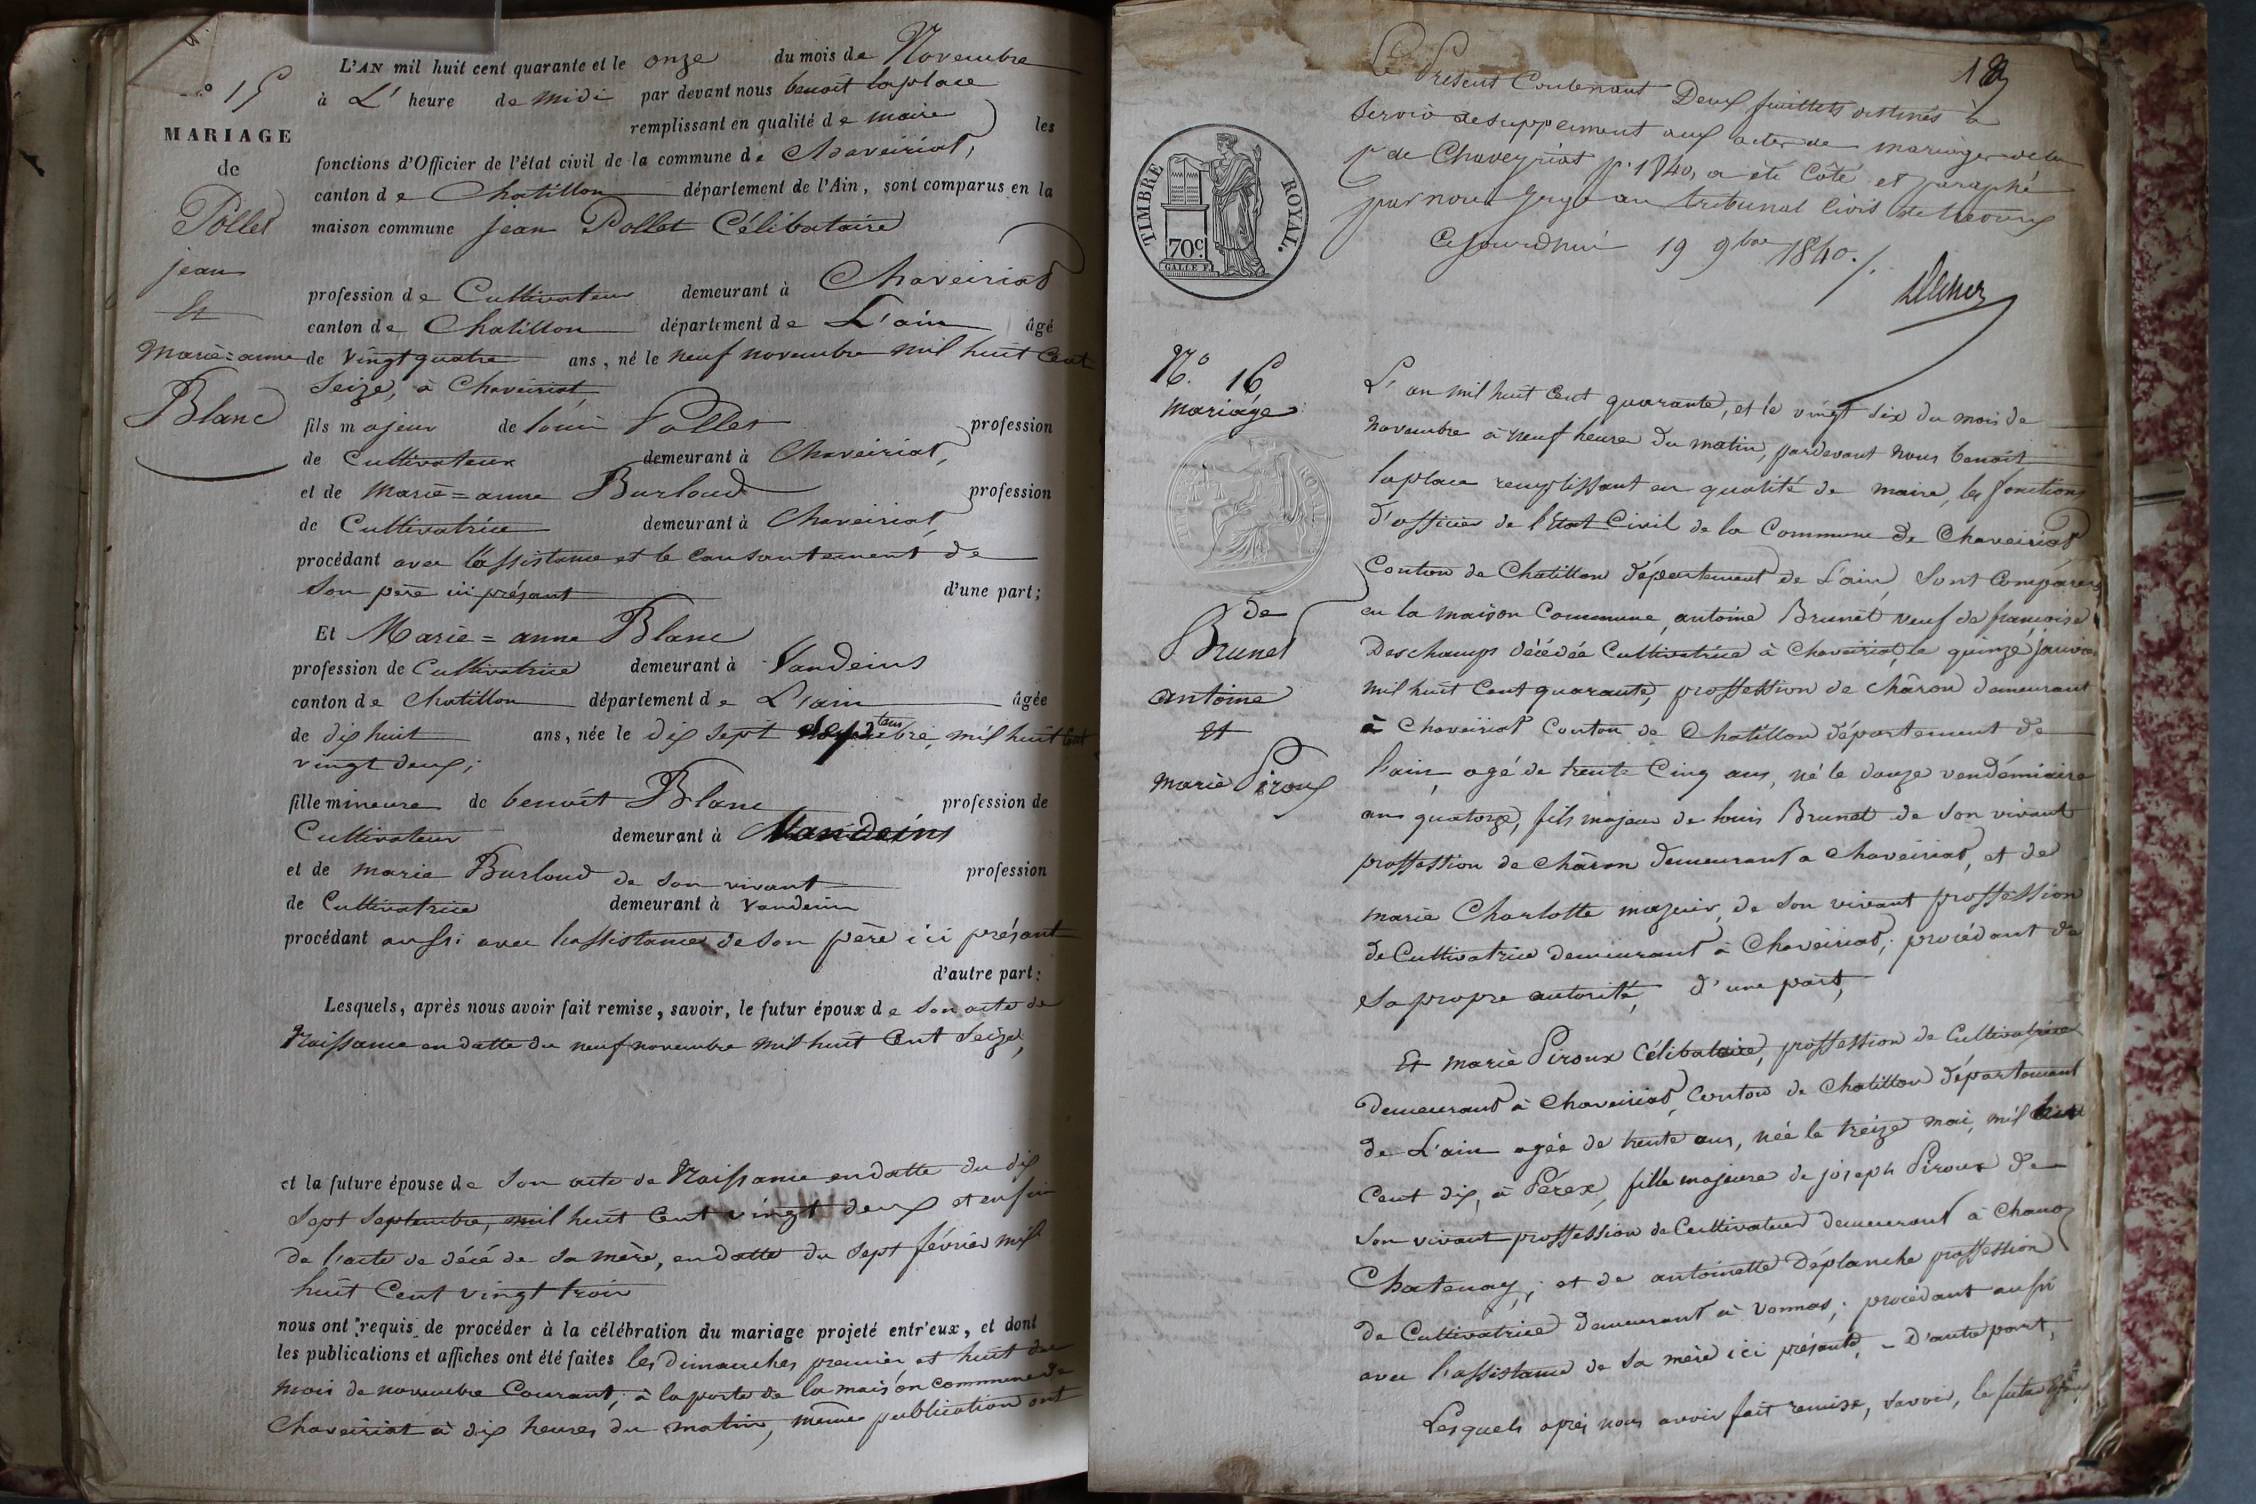 N° 15
MARIAGE
de
Pollet
jean
Et
Marie=anne
Blanc
L'AN mil huit cent quarante et le onze du mois de Novembre
à L' heure de midi par devant nous benoît laplace
remplissant en qualité de maire les
fonctions d'Officier de l'état civil de la commune de Chaveiriat,
canton de Chatillon département de l'Ain, sont comparus en la
maison commune jean Pollet Célibataire
profession de Cultivateur demeurant à Chaveiriat
canton de Chatillon département de L'ain âgé
de vingt quatre ans, né le neuf novembre mil huit Cent
Seize, à Chaveiriat
fils majeur de louis Pollet profession
de Cultivateur demeurant à Chaveiriat,
et de Marie=anne Burloud profession
de Cultivatrice demeurant à Chaveiriat,
procédant avec l'assistance et le consantement de
Son père ici présant d'une part;
Et Marie=anne Blanc
profession de Cultivatrice demeurant à Vandeins
canton de Chatillon département de L'ain âgée
de dix huit ans, née le dix sept Septembre, mil huit Cent
vingt deux;
fille mineure de benoît Blanc profession de
Cultivateur demeurant à Vandeins
et de marie Burloud de son vivant profession
de Cultivatrice demeurant à Vandeins
procédant aussi avec l'assistance de son père ici présant
d'autre part;
Lesquels, après nous avoir fait remise, savoir, le futur époux de son acte de
Naissance en datte du neuf novembre mil huit Cent Seize,
et la future épouse de Son acte de Naissance en datte du dix
Sept Septembre, mil huit Cent vingt deux et enfin
de l'acte de décé de sa mère, en datte du sept février mil
huit Cent vingt trois
nous ont requis de procéder à la célébration du mariage projeté entr'eux, et dont
les publications et affiches ont été faites les dimanches premier et huit du
mois de novembre Courant, à la porte de la maison commune de
Chaveiriat à dix heures du matin, même publication ont
Le Présent Contenant Deux feuillets destinés à
Servir de supplement aux actes de mariages de la
de Chaveyriat pr 1840, a été Côté et paraphé
par nous Juge au tribunal Civil de trévoux
Cejourd'hui 19 9bre 1840./.
TIMBRE ROYAL.
70c
N° 16
mariage
de
Brunet
antoine
et
marie Piroux
L'an mil huit Cent quarante, et le vingt Six du mois de
Novembre à neuf heures du matin, pardevant Nous benoît
laplace remplissant en qualité de maire, les fonctions
d'officier de l'état Civil de la Commune de Chaveiriat
Canton de Chatillon département de L'ain, Sont Comparus
en la maison Commune, antoine Brunet veuf de françoise
Deschamps décédée Cultivatrice à Chaveiriat, le quinze janvier
mil huit Cent quarante, proffession de châron demeurant
à Chaveiriat Canton de Chatillon département de
l'ain, agé de trente Cinq ans, né le douze vendémiaire
an quatorze, fils majeur de louis Brunet de Son vivant
proffession de châron demeurant à Chaveiriat, et de
marie Charlotte de Son vivant proffession
de Cultivatrice demeurant à Chaveiriat, procédant de
Sa propre autorité, d'une part,
Et marie Piroux Célibataire, proffession de Cultivatrice
demeurant à Chaveiriat, Canton de Chatillon département
de L'ain agée de trente ans, née le treize mai, mil huit
Cent dix, à Pérex, fille majeure de joseph Piroux de
Son vivant proffession de Cultivateur demeurant à Chanoz
Chatenay; et de antoinette Déplanche proffession
de Cultivatrice demeurant à Vonnas; procédant aussi
avec l'assistance de Sa mère ici présante, - D'autre part,
Lesquels après nous avoir fait remise, savoir, le futur époux